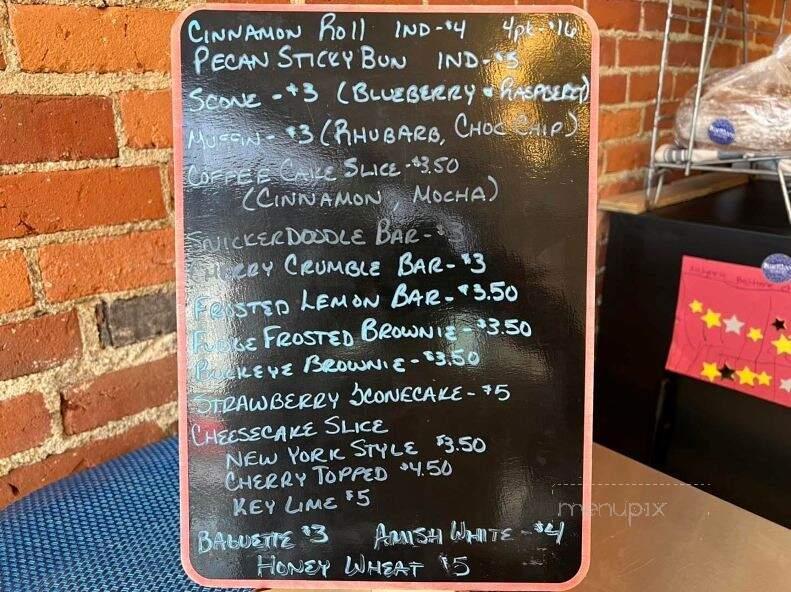 CINNAMON ROLL IND-$4 4pk-$16
PECAN STICKY BUN IND-$5
SCONE - $3 (BLUEBERRY • RASPBERRY)
MUFFIN - $3 (RHUBARB, CHOC CHIP)
COFFEE CAKE SLICE -$3.50
(CINNAMON, MOCHA)
SNICKERDOODLE BAR-$3
CHERRY CRUMBLE BAR-$3
FROSTED LEMON BAR-$3.50
FUDGE FROSTED BROWNIE-$3.50
BUCKEYE BROWNIE-$3.50
STRAWBERRY SCONECAKE-$5
CHEESECAKE SLICE
NEW YORK STYLE $3.50
CHERRY TOPPED $4.50
KEY LIME $5
BAGUETTE $3 AMISH WHITE -$4
HONEY WHEAT $5
menupix